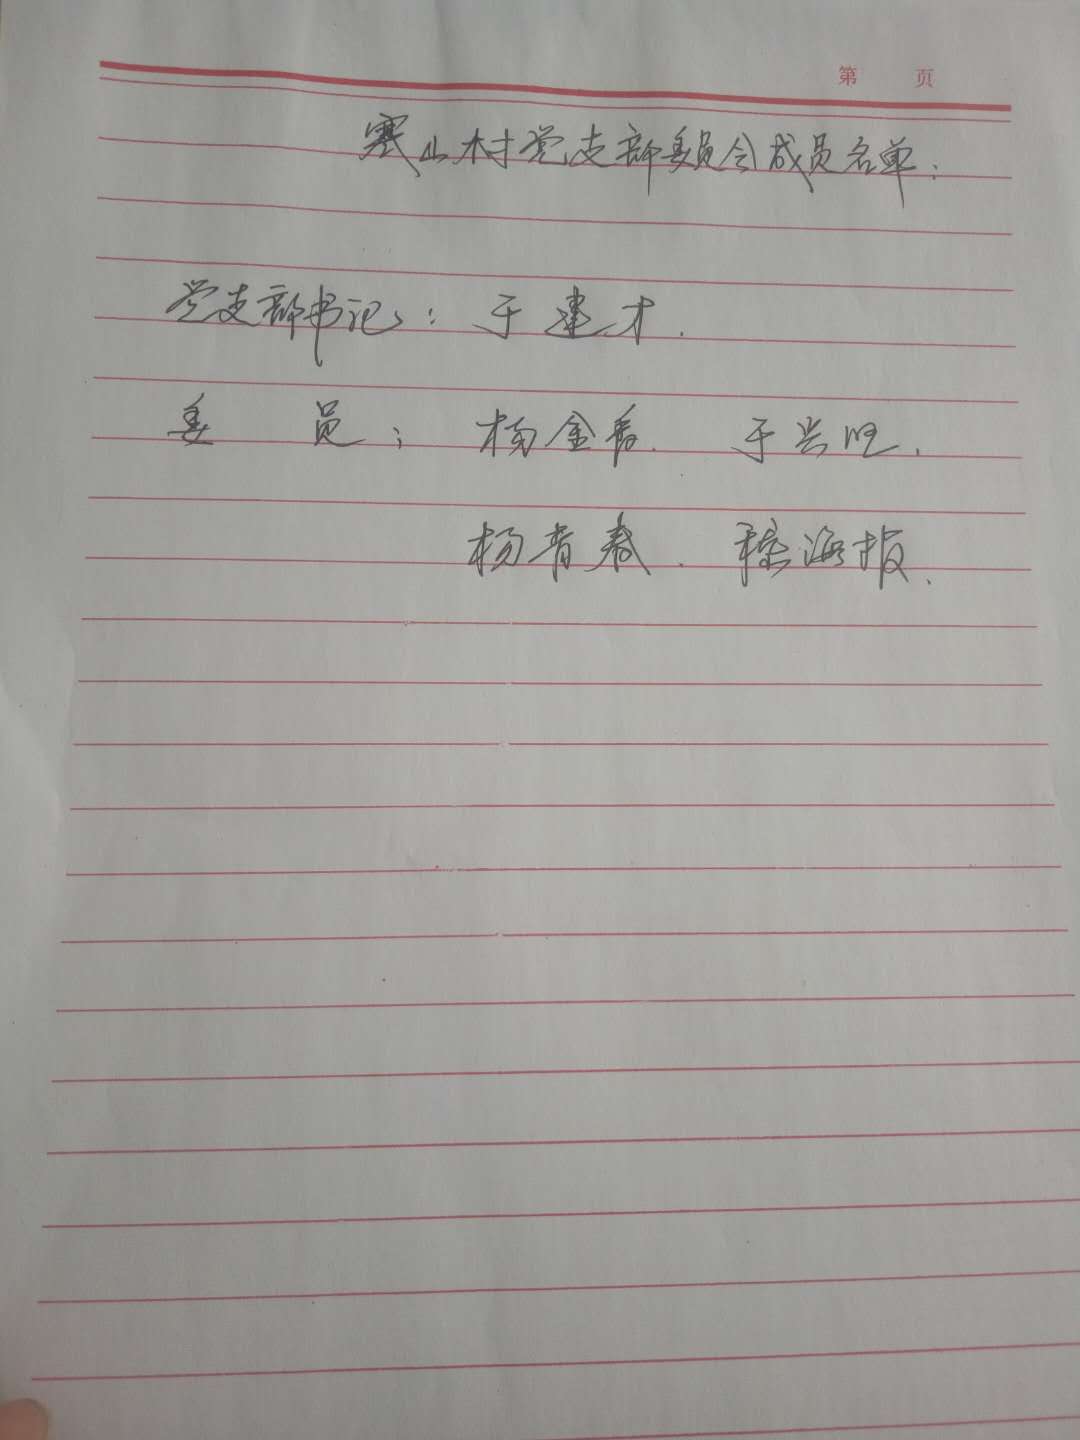 第 页
寒山村党支部委员会成员名单:
党支部书记: 于建才.
委 员: 杨金香. 于兴旺.
杨青春. 海报.